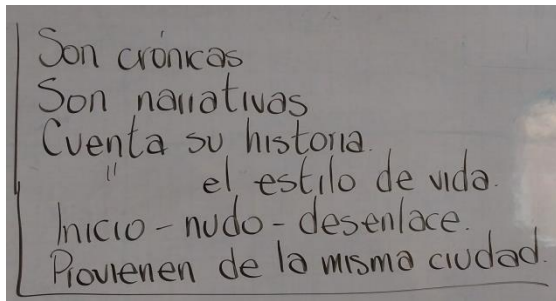 Son crónicas
Son narrativas
Cuenta su historia.
" el estilo de vida.
Inicio - nudo - desenlace.
Provienen de la misma ciudad.